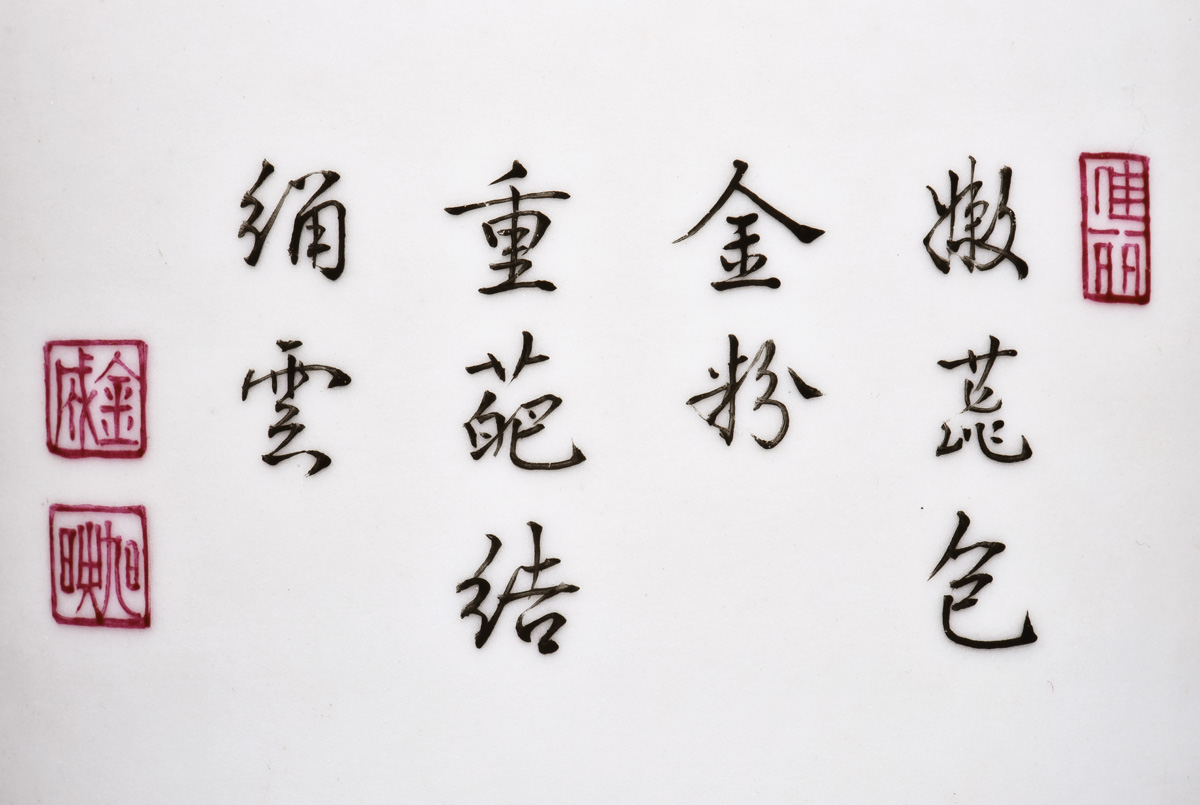 佳麗
嫩蕊包
金粉
重葩結
繡雲
金成
旭映